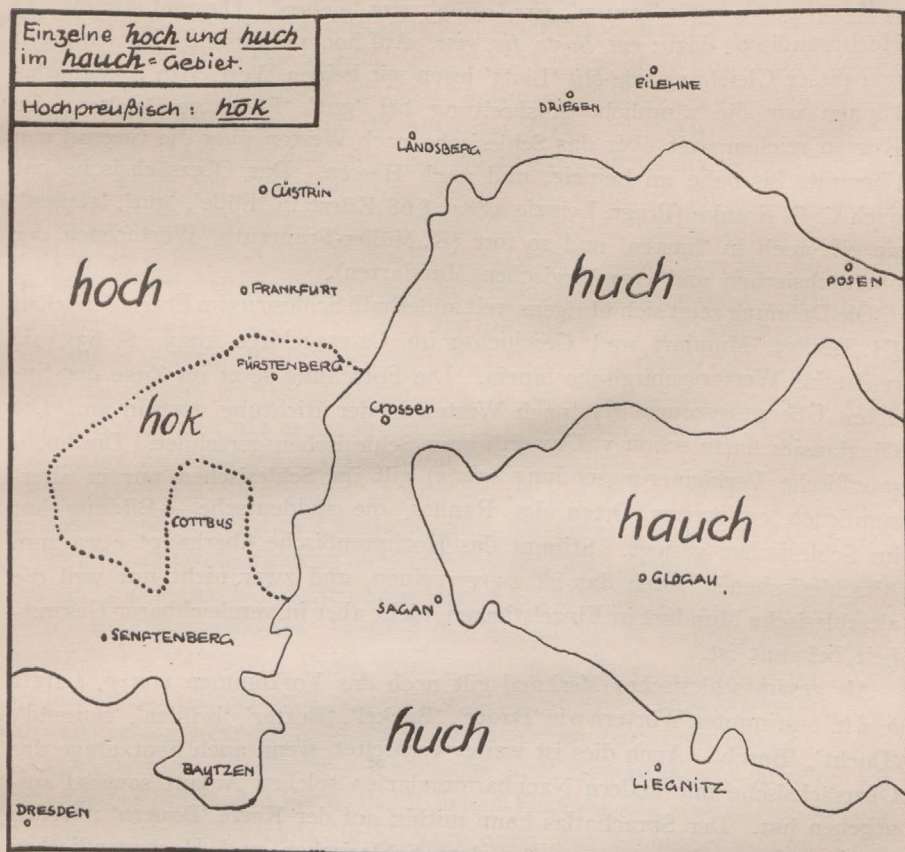 Einzelne hoch und huch
im hauch = Gebiet.
Hochpreußisch : hōk
EILEHNE
DRIESEN
LANDSBERG
CÜSTRIN
hoch
huch
POSEN
FRANKFURT
FÜRSTENBERG
hok
Crossen
COTTBUS
hauch
GLOGAU
SAGAN
SENFTENBERG
huch
BAUTZEN
LIEGNITZ
DRESDEN